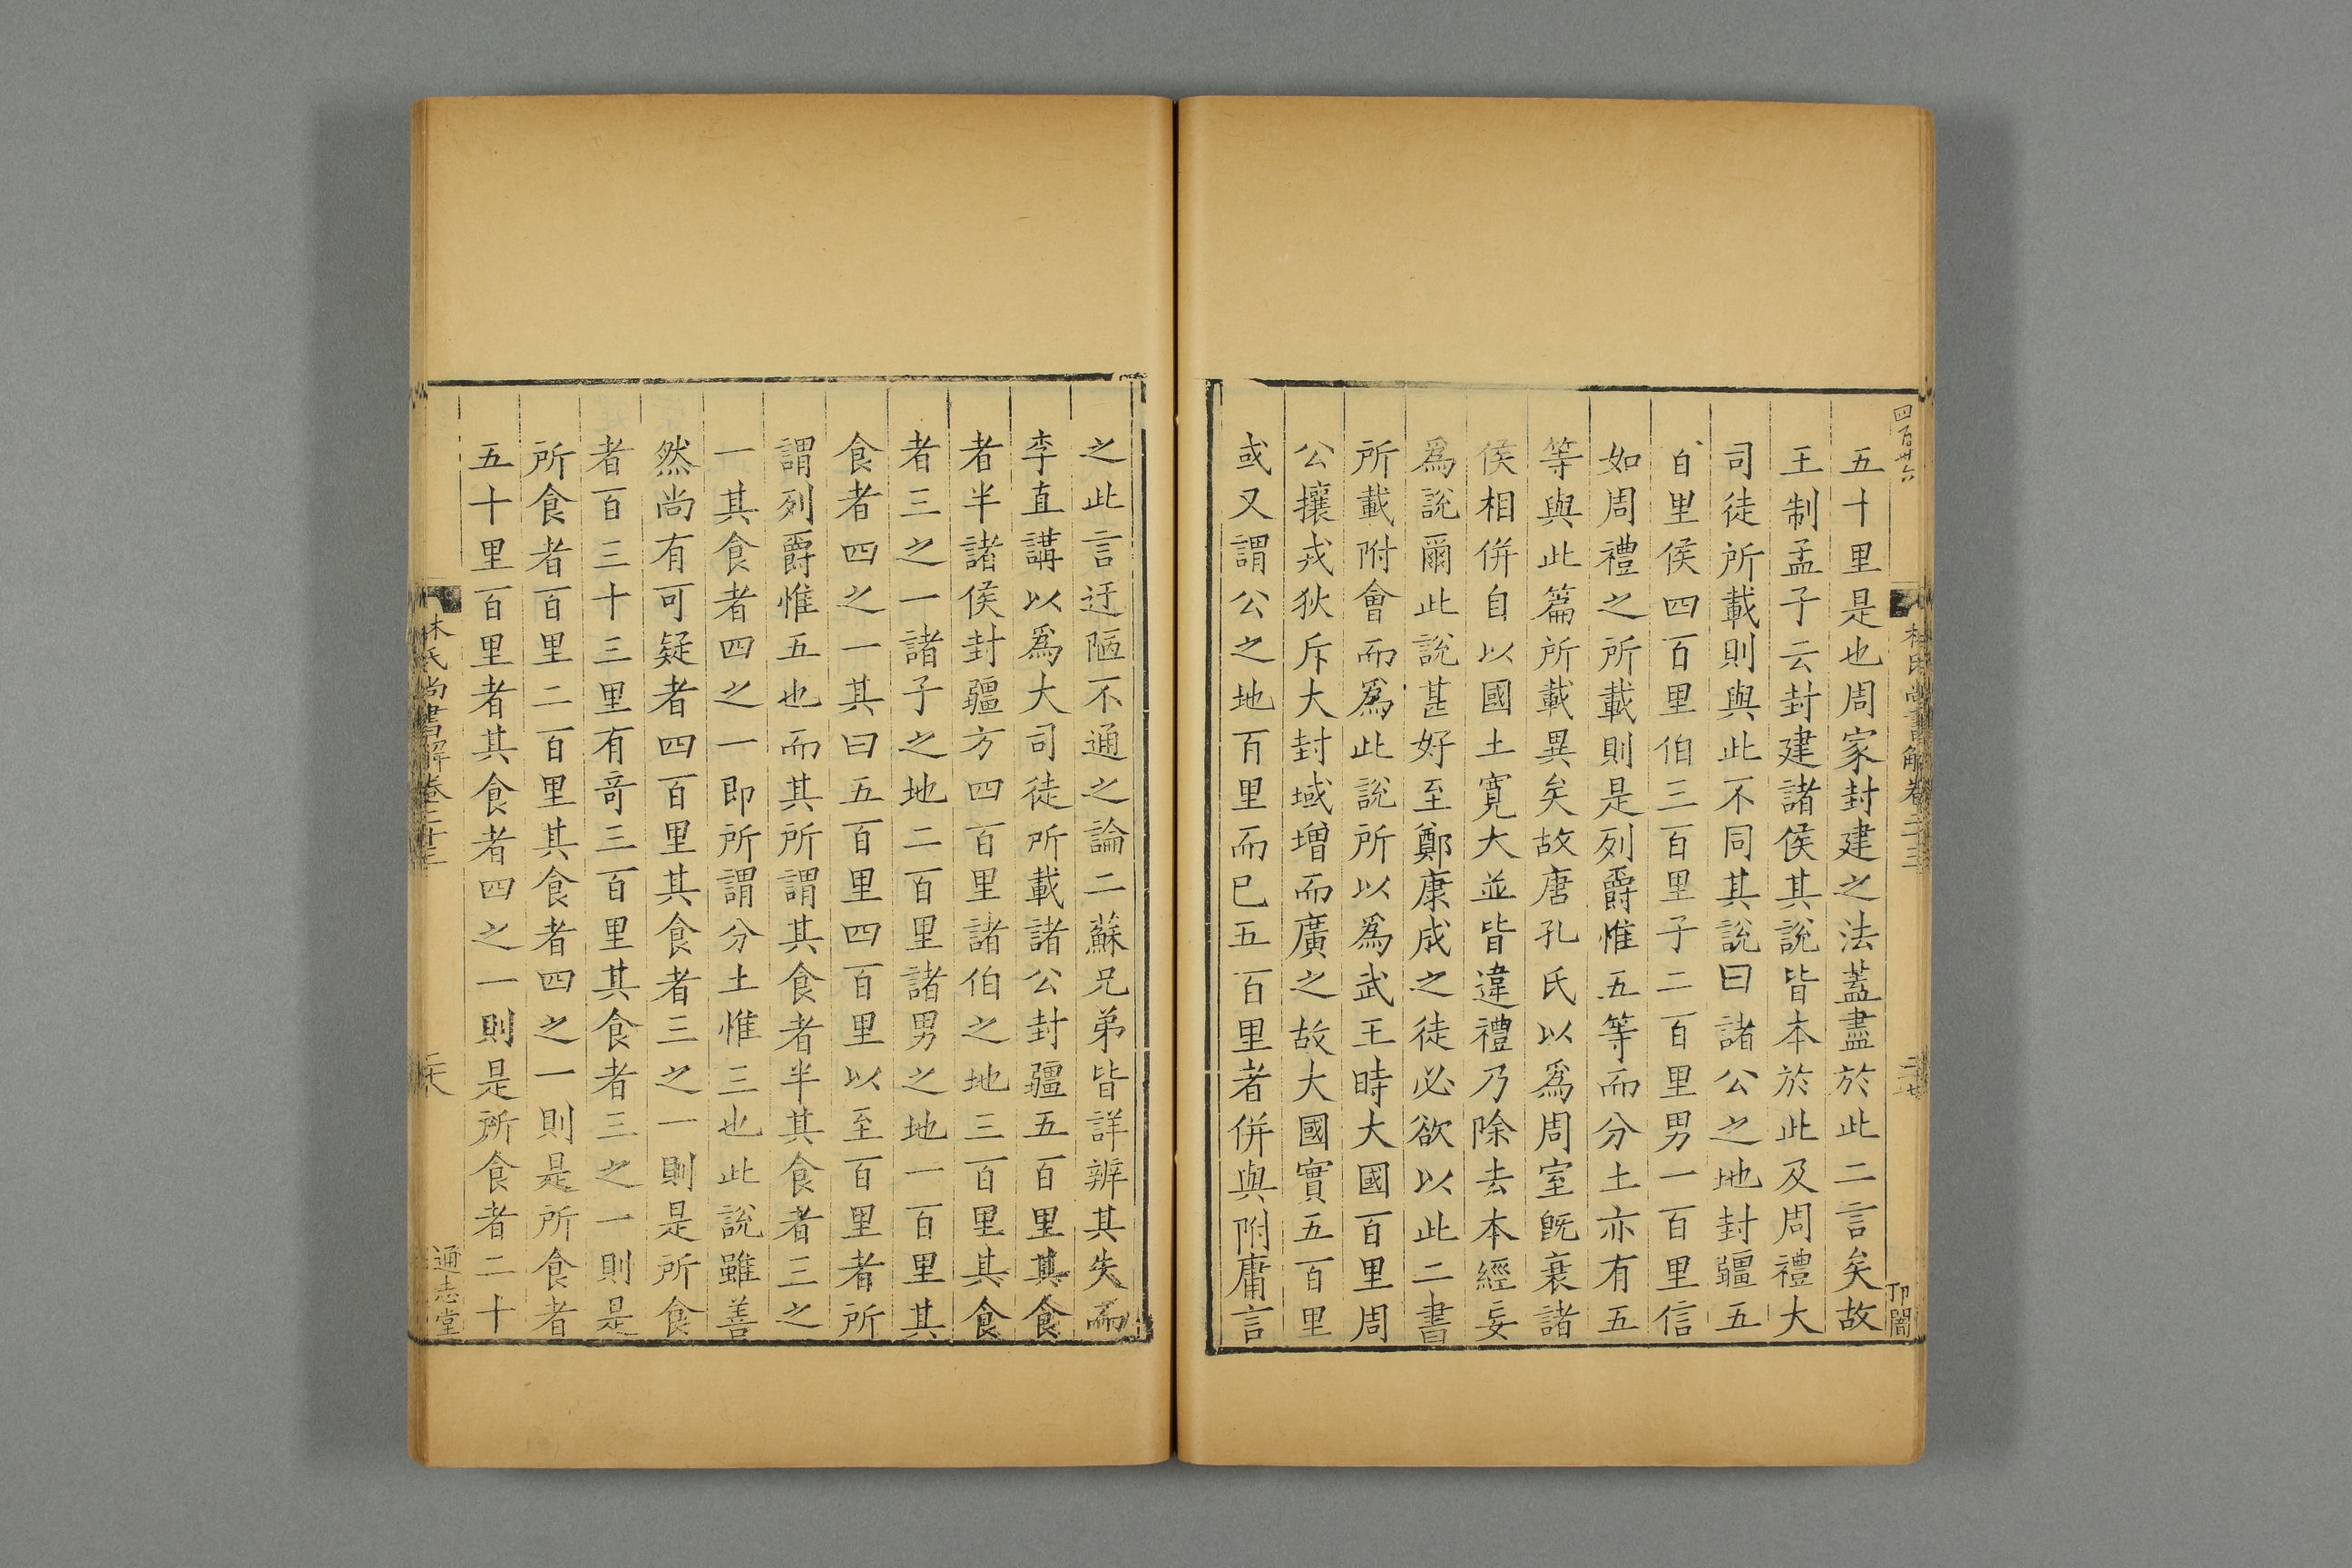 四百廿六
林氏尚書解卷二十三
五十里是也周家封建之法蓋盡於此二言矣故
王制孟子云封建諸侯其說皆本於此及周禮大
司徒所載則與此不同其說曰諸公之地封疆五
百里侯四百里伯三百里子二百里男一百里信
如周禮之所載則是列爵惟五等而分土亦有五
等與此篇所載異矣故唐孔氏以爲周室旣衰諸
侯相併自以國土寬大並皆違禮乃除去本經妄
爲說爾此說甚好至鄭康成之徒必欲以此二書
所載附會而爲此說所以爲武王時大國百里周
公攘戎狄斥大封域增而廣之故大國實五百里
或又謂公之地百里而已五百里者併與附庸言
之此言迂陋不通之論二蘇兄弟皆詳辨其失而
李直講以爲大司徒所載諸公封疆五百里其食
者半諸侯封疆方四百里諸伯之地三百里其食
者三之一諸子之地二百里諸男之地一百里其
食者四之一其曰五百里四百里以至百里者所
謂列爵惟五也而其所謂其食者半其食者三之
一其食者四之一即所謂分土惟三也此說雖善
然尚有可疑者四百里其食者三之一則是所食
者百三十三里有竒三百里其食者三之一則是
所食者百里二百里其食者四之一則是所食者
五十里百里者其食者四之一則是所食者二十
林氏尚書解卷二十三
通志堂